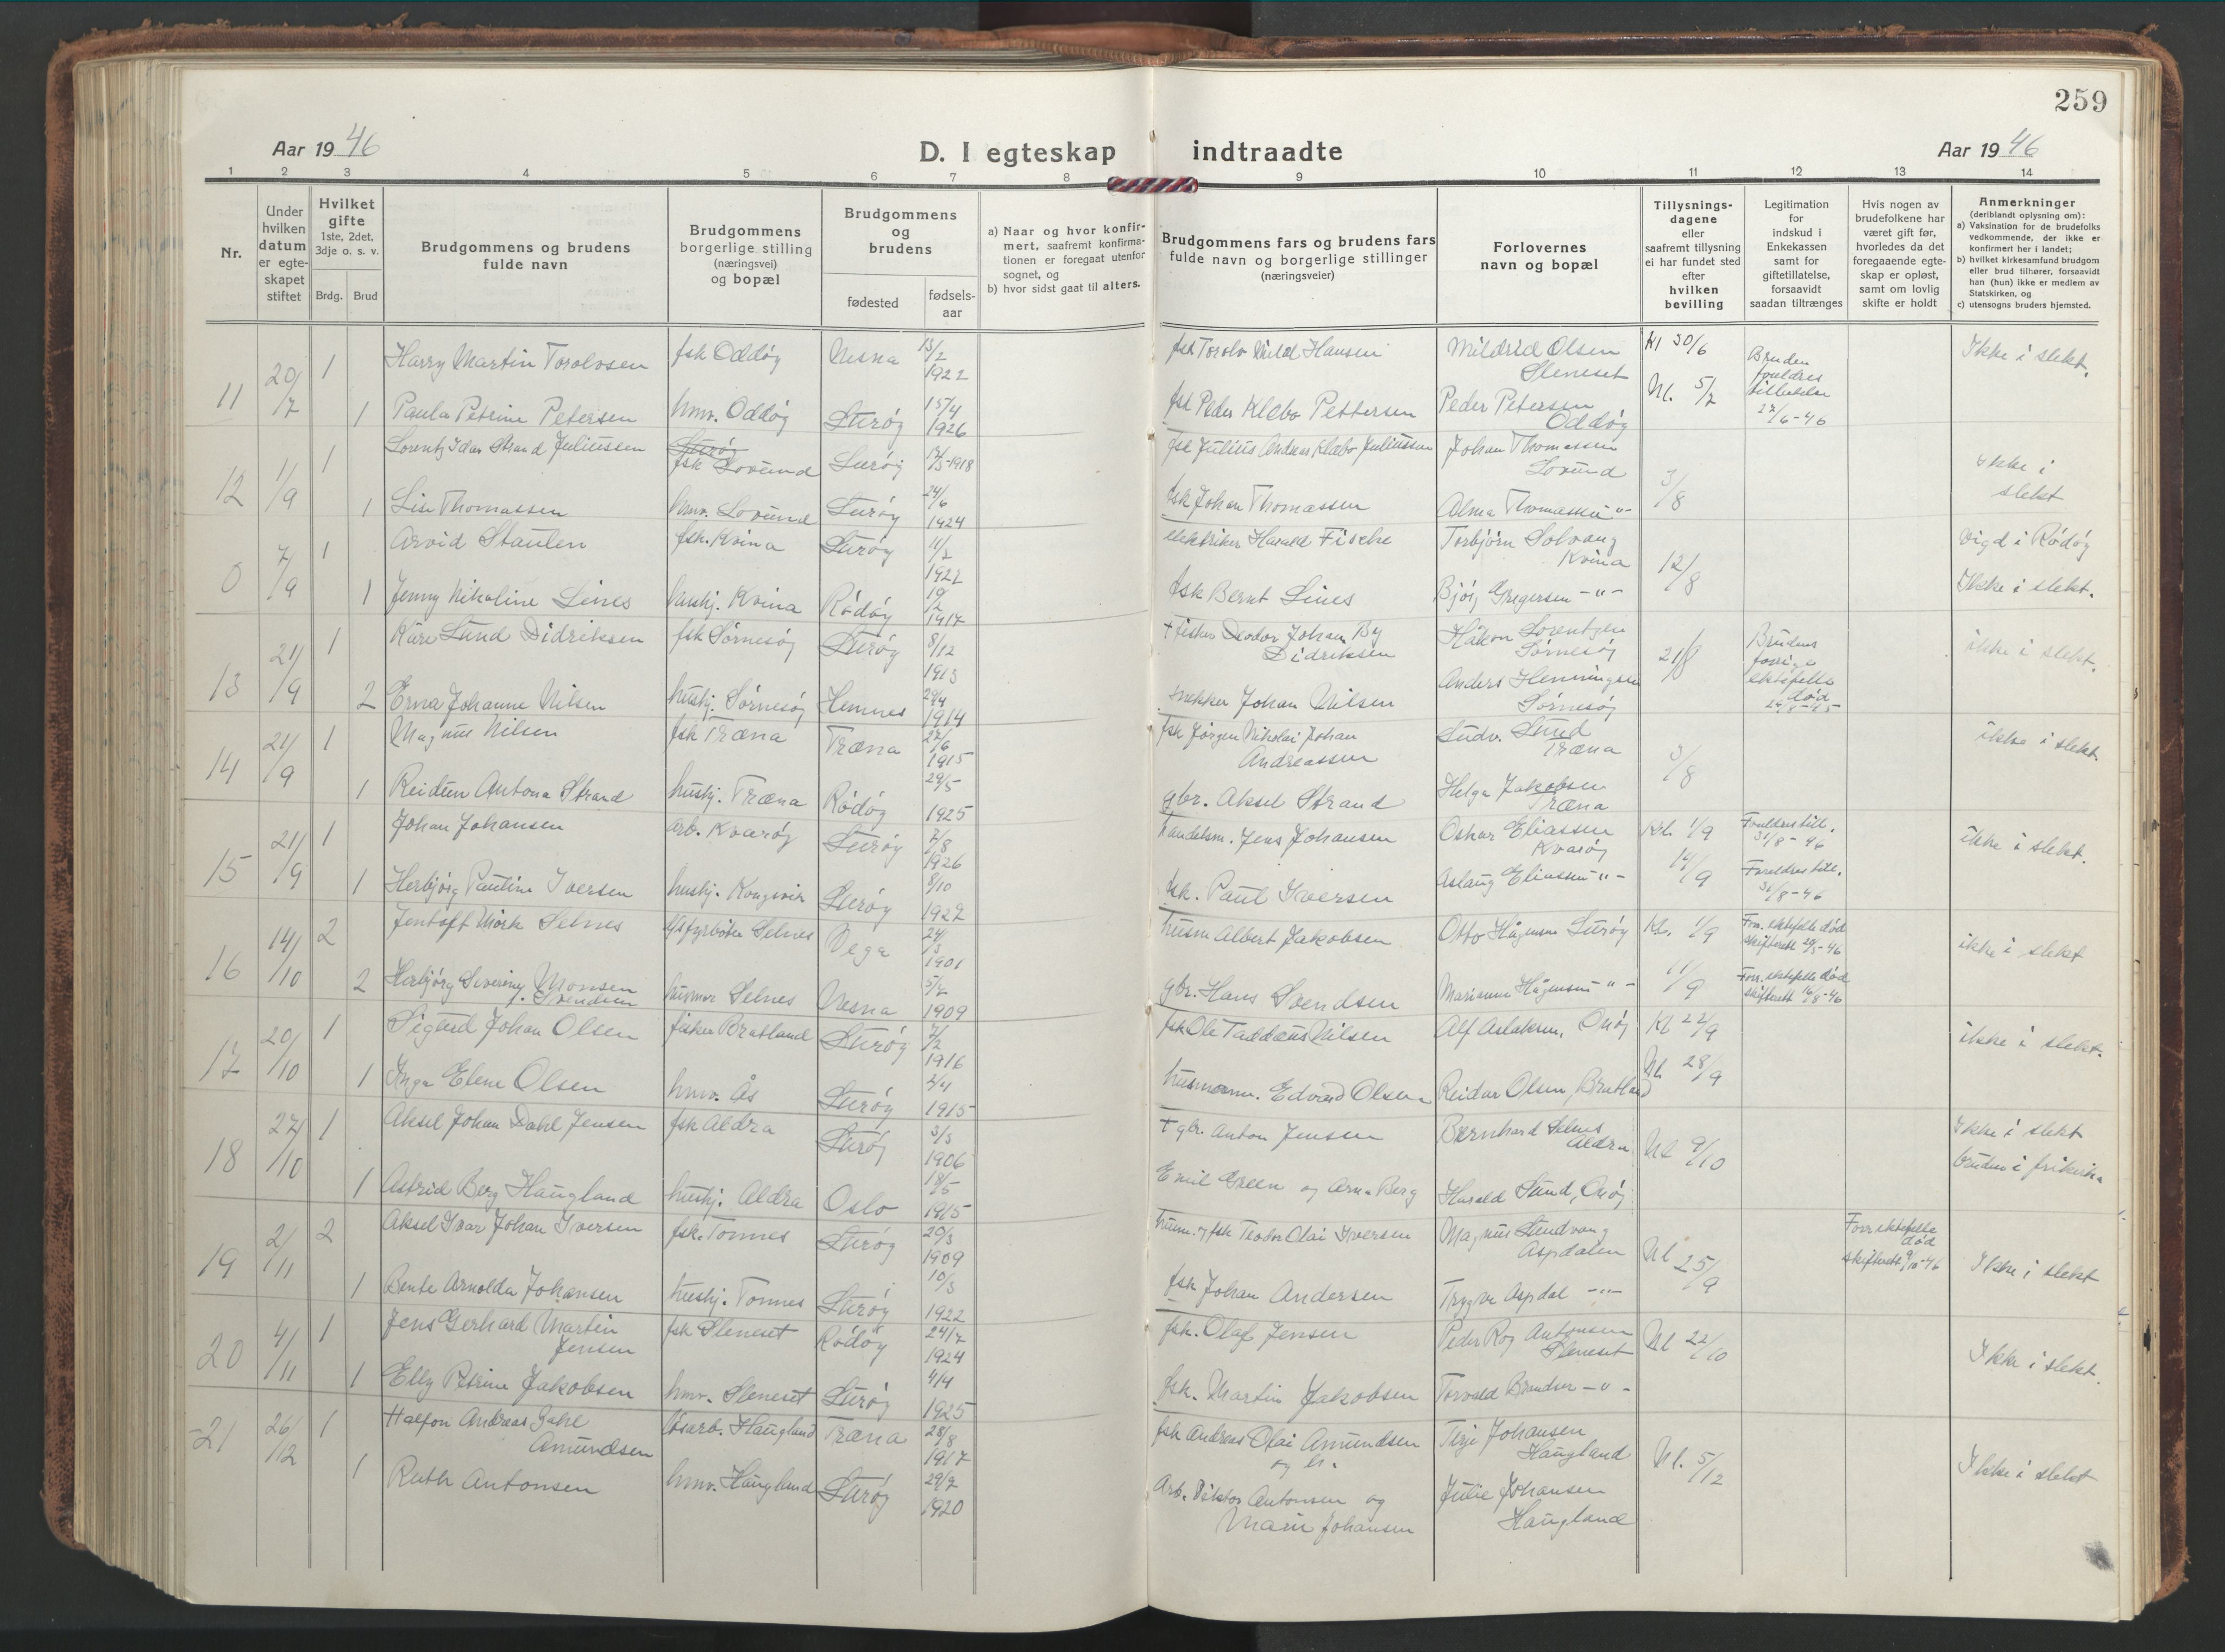 259
Aar 1946
D. I egteskap indtraadte
Aar 1946
1 2 3 4 5 6 7 8 9 10 11 12 13 14
Nr.
Under hvilken datum er egteskapet stiftet
Hvilket gifte 1ste, 2det, 3dje o. s. v.
Brdg. Brud
Brudgommens og brudens fulde navn
Brudgommens borgerlige stilling (næringsvei) og bopæl
Brudgommens og brudens
fødested
fødsels-aar
a) Naar og hvor konfirmert, saafremt konfirmationen er foregaat utenfor sognet, og
b) hvor sidst gaat til alters.
Brudgommens fars og brudens fars fulde navn og borgerlige stillinger (næringsveier)
Forlovernes navn og bopæl
Tillysningsdagene eller saafremt tillysning ei har fundet sted efter hvilken bevilling
Legitimation for indskud i Enkekassen samt for giftetillatelse, forsaavidt saadan tiltrænges
Hvis nogen av brudefolkene har været gift før, hvorledes da det foregaaende egteskap er opløst, samt om lovlig skifte er holdt
Anmerkninger (deriblandt oplysning om):
a) Vaksination for de brudefolks vedkommende, der ikke er konfirmert her i landet;
b) hvilket kirkesamfund brudgom eller brud tilhører, forsaavidt han (hun) ikke er medlem av Statskirken, og
c) utensogns bruders hjemsted.
11 20/7 1 Harry Martin Torolvsen fsk Oddøy Nesna 13/2 1922 fsk Torolv Hansen Mildrid Olsen Sleneset Kl 30/6 Ikke i slekt.
1 Paula Petrine Petersen hmv. Oddøy Lurøy 15/4 1926 fsk Peder Klæbo Pettersen Peder Petersen Oddøy Nl. 5/7 Bruden foreldres tillatelse 27/6-46
12 1/9 1 Lorentz Idar Strand Juliussen fsk Lovund Lurøy 1918 fsk Julius Andreas Klæbo Juliussen Johan Thomassen Lovund 3/8 Ikke i slekt
1 Lise Thomassen hmv. Lovund Lurøy 24/6 1924 fsk Johan Thomassen Alma Thomassen -"-
0 7/9 1 Arvid Staulen fsk. Kvina Lurøy 11/2 1922 elektriker Harald Fische Torbjørn Solvang Kvina 12/8 Vigd i Rødøy
1 Jenny Nikoline Lines hushj. Kvina Rødøy 19/2 1917 fsk Bernt Lines Bjørg Gregersen -"- Ikke i slekt.
13 21/9 1 Kåre Lund Didriksen fsk Sørnesøy Lurøy 8/12 1913 fisker Teodor Johan By Didriksen Håkon Lorentzen Sørnesøy 21/8 Brudens forrige ektefelle død ikke i slekt.
2 Erna Johanne Nilsen hushj. Sørnesøy Hemnes 29/4 1914 snekker Johan Nilsen Anders Henningsen Sørnesøy
14 21/9 1 Magnus Nilsen fsk Træna Træna 27/6 1915 fsk Jørgen Nikolai Johan Andreassen Ludv. Lund Træna 3/8 ikke i slekt.
1 Reidun Antona Strand hushj. Træna Rødøy 29/5 1925 gbr. Aksel Strand Helga Jakobsen Træna
15 21/9 1 Johan Johansen arb. Kvarøy Lurøy 2/8 1926 handelsm. Jens Johansen Oskar Eliassen Kvarøy Kl. 1/9 Foreldres till. 31/8-46 ikke i slekt.
1 Herbjørg Pauline Iversen hushj. Kongsvir Lurøy 8/10 1927 fsk. Paul Iversen Aslaug Eliassen -"- 14/9 Foreldres till. 31/8-46
16 14/10 2 Jentoft Mørk Selnes Selnes Vega 24/3 1901 husm Albert Jakobsen Otto Hågensen Lurøy Kl. 1/9 Forr. ektefelle død skifteatt 29/5-46 ikke i slekt
2 Herbjørg Severiny Monsen f. Svendsen husmor Selnes Nesna 5/2 1909 gbr. Hans Svendsen Marianne Hågensen -"- 11/9 Forr. ektefelle død skifteatt 16/8-46
17 20/10 1 Sigurd Johan Olsen fisker Bratland Lurøy 7/2 1916 fsk Ole Taddæus Nilsen Alf Aslaksen, Onøy Kl 22/9 ikke i slekt.
1 Inga Elene Olsen hmv. Ås Lurøy 2/4 1915 husmann. Edvard Olsen Reidar Olsen, Bratland Nl. 28/9
18 27/10 1 Aksel Johan Dahl Jensen fsk Aldra Lurøy 3/3 1906 gbr. Anton Jensen Bernhard Selnes Aldra Nl 9/10 Ikke i slekt
1 Astrid Berg Haugland hushj. Aldra Oslo 18/5 1915 Emil Green og Arna Berg Harald Lund, Onøy bruden i frikirka
19 2/11 2 Aksel Ivar Johan Iversen fsk. Tonnes Lurøy 20/3 1909 husm. og fsk Teodor Olai Iversen Magnus Lundvang Aspdalen Nl 25/9 Forr. ektefelle død skifteatt 9/10-46 Ikke i slekt
1 Bente Arnolda Johansen hushj. Tonnes Lurøy 10/3 1922 fsk Johan Andersen Trygve Aspdal -"-
20 4/11 1 Jens Gerhard Martin Jensen fsk Sleneset Rødøy 24/7 1924 fsk. Olaf Jensen Peder Roy Antonsen Sleneset Nl 22/10 Ikke i slekt.
1 Elly Petrine Jakobsen hmv. Sleneset Lurøy 4/4 1925 fsk. Martin Jakobsen Torvald Brandser -"-
21 26/12 1 Halfon Andreas Dahl Amundsen løsarb. Haugland Træna 28/8 1917 fsk Andreas Olai Amundsen og h. Terje Johansen Haugland Nl. 5/12 Ikke i slekt
1 Ruth Antonsen hmv. Haugland Lurøy 29/7 1920 Arb. Viktor Antonsen og Marie Johansen Julie Johansen Haugland